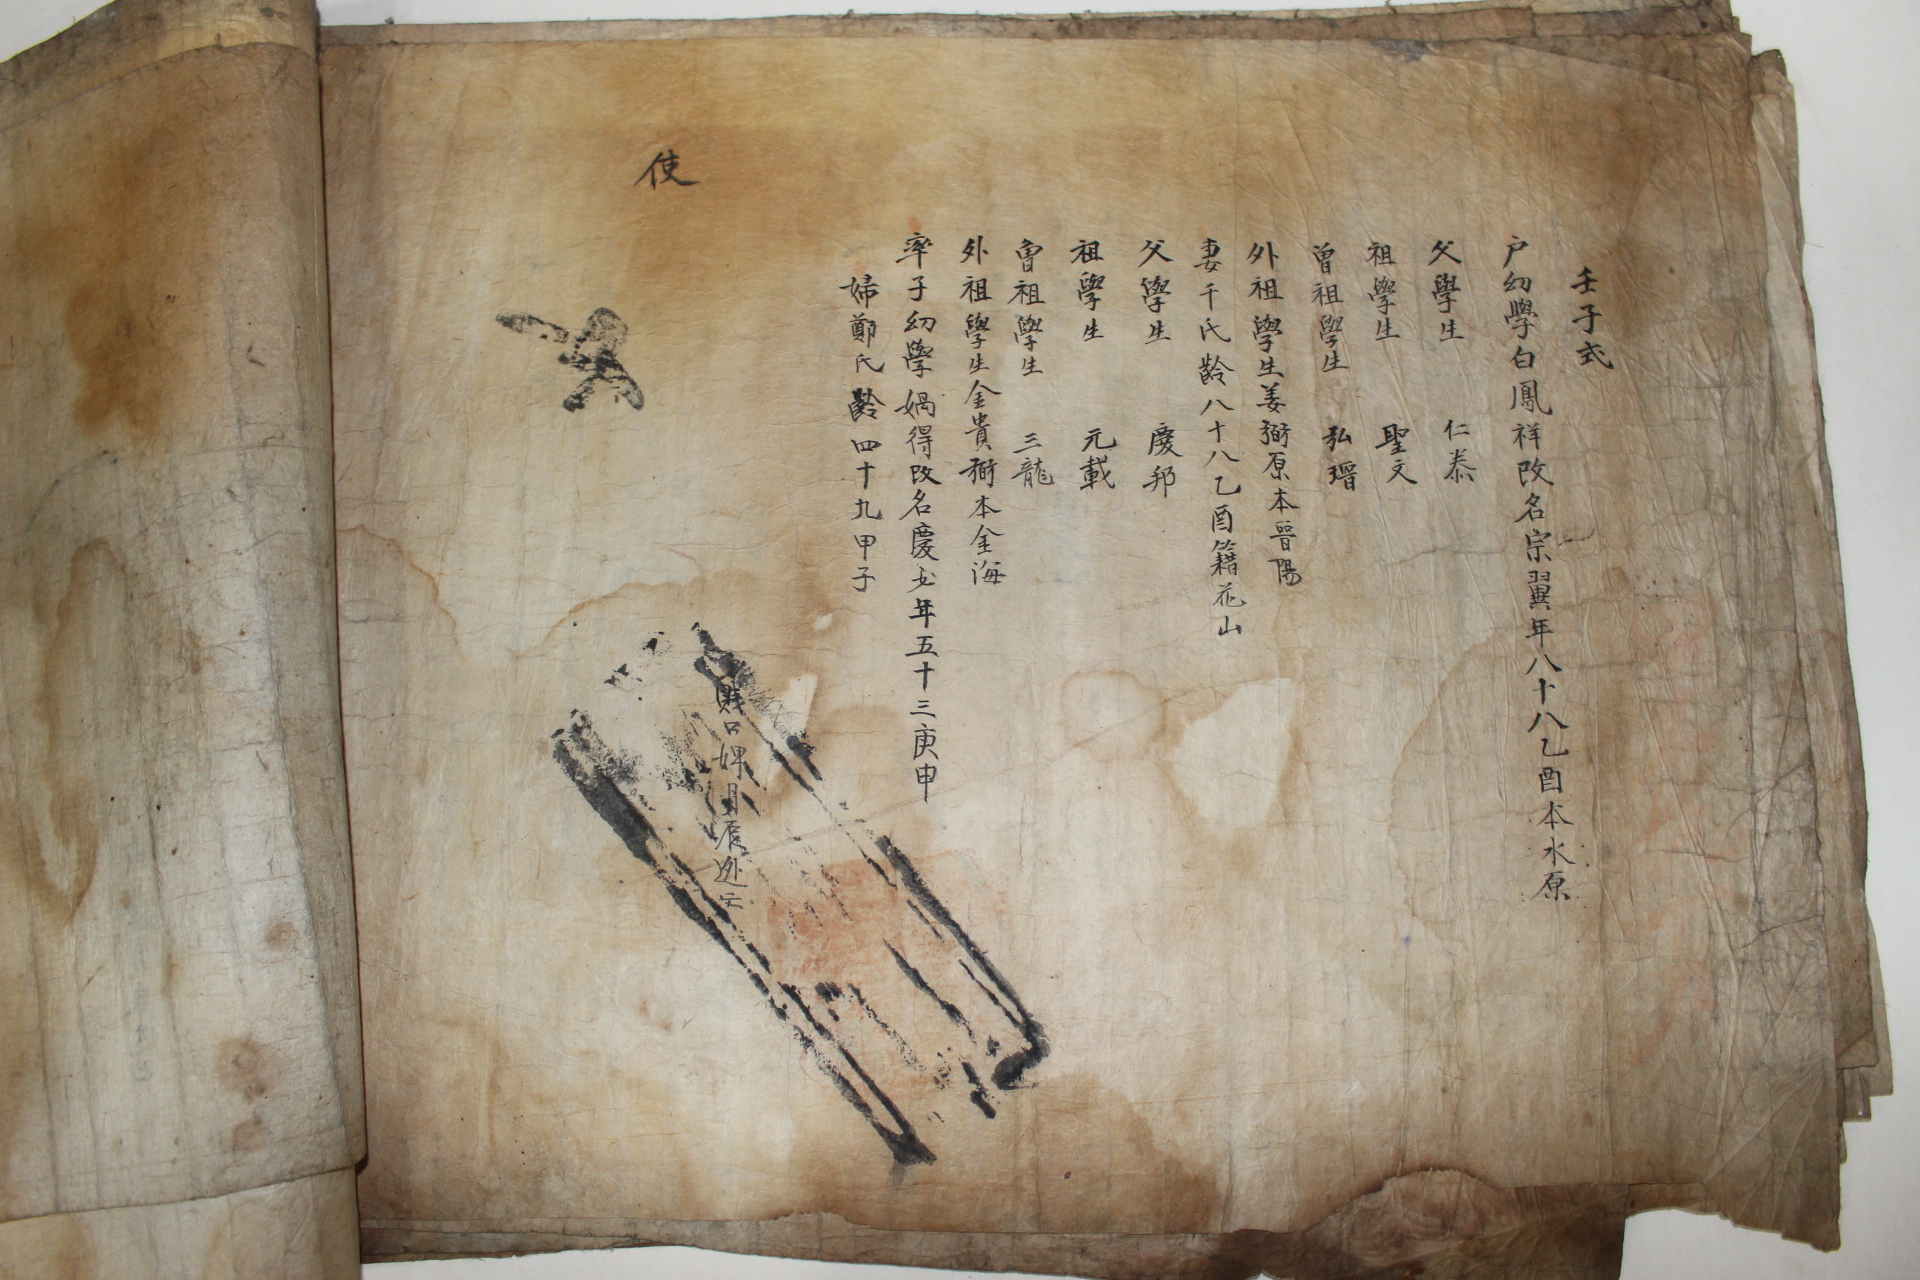 壬子式
戶幼學白鳳祥改名宗翼年八十八乙酉本水原
父學生 仁泰
祖學生 聖文
曾祖學生 弘瑨
外祖學生姜弼原本晉陽
妻千氏齡八十八乙酉籍花山
父學生 慶邦
祖學生 元載
曾祖學生 三龍
外祖學生金貴弼本金海
率子幼學 得改名慶 年五十三庚申
婦鄭氏齡四十九甲子
賤口婢月
使